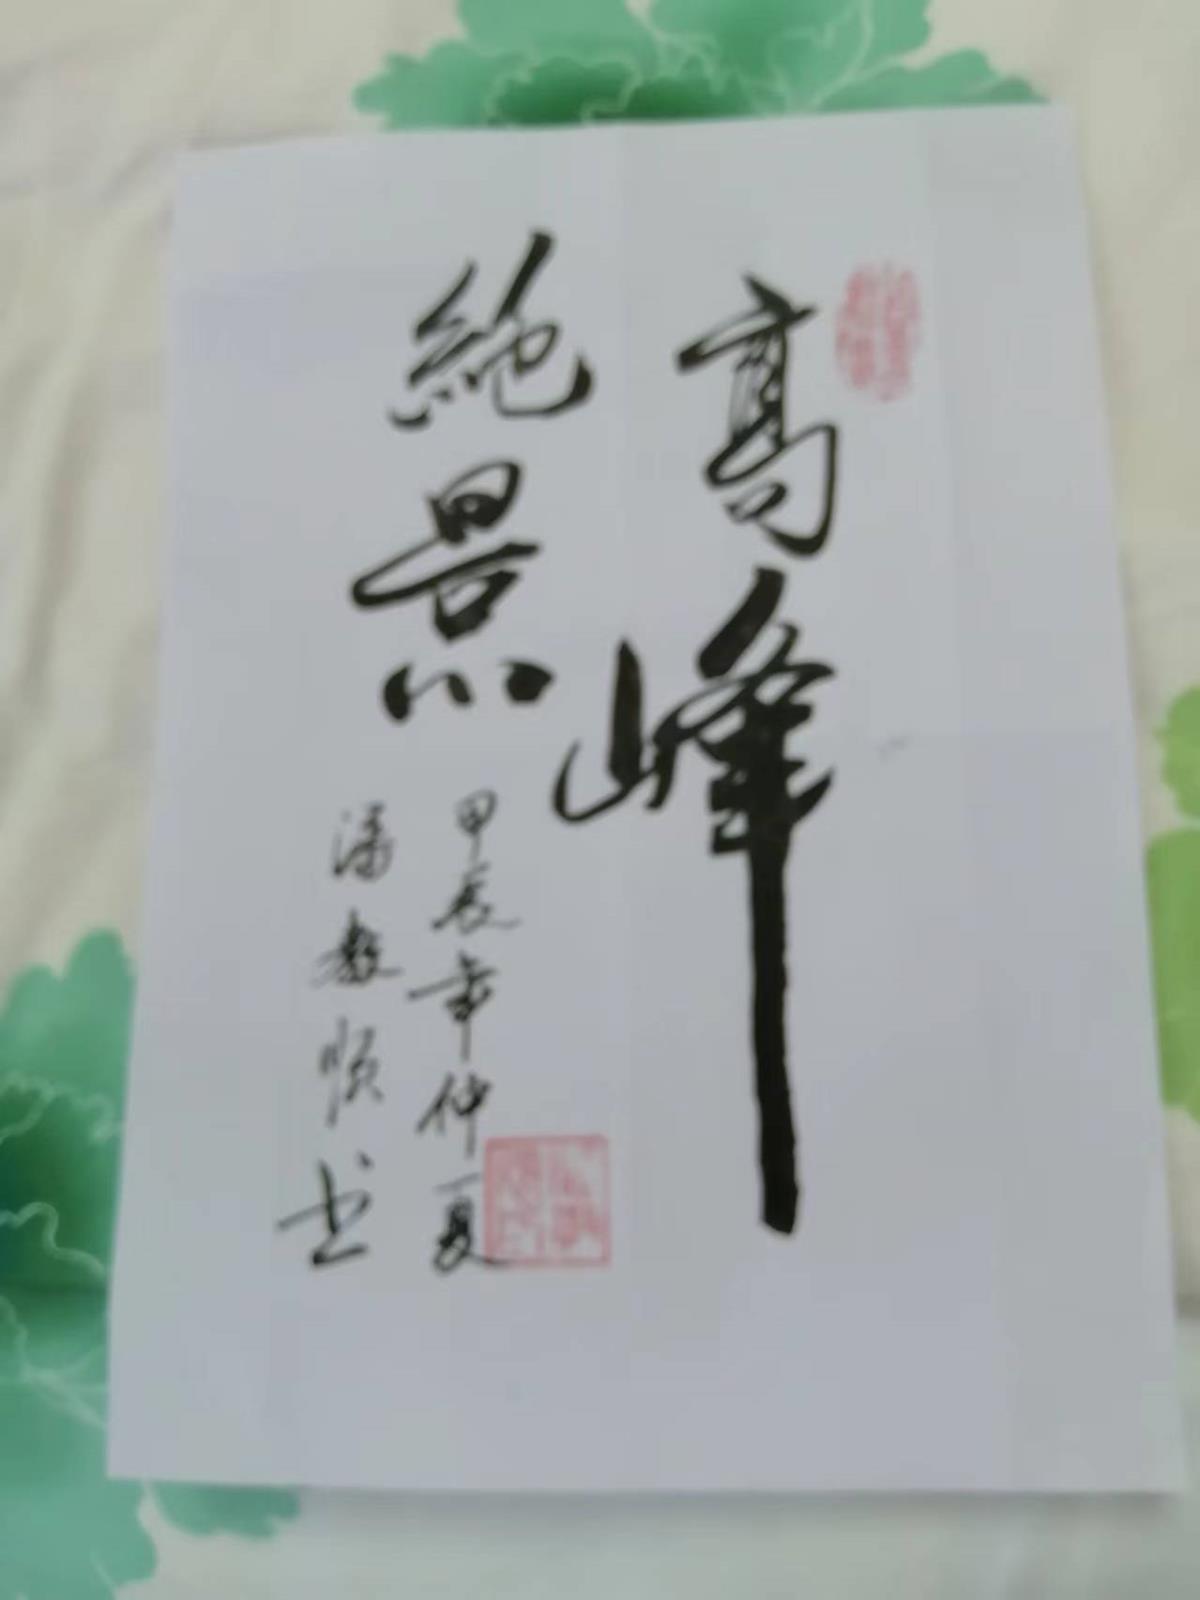 高峰
絶景
甲辰年仲夏
潘教顺书